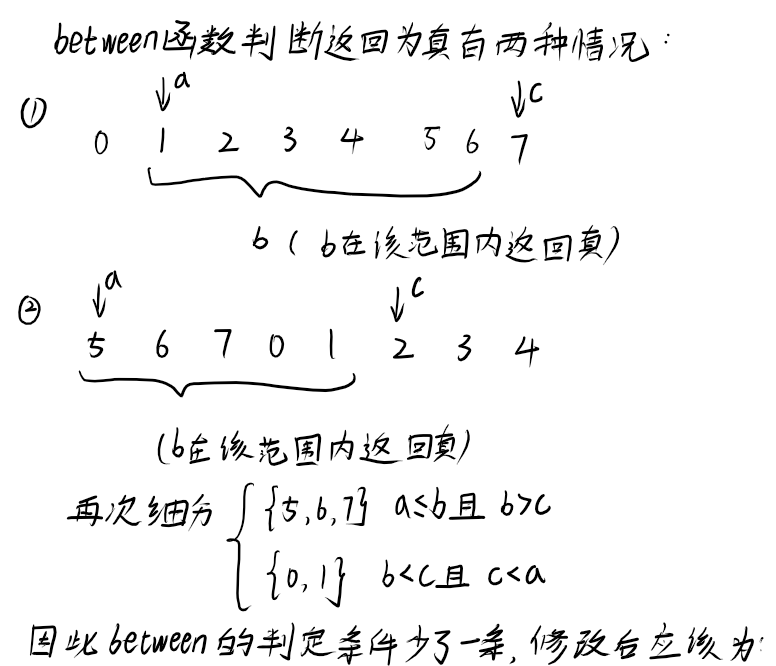 between函数判断返回为真有两种情况：
① ↓a ↓c
0 1 2 3 4 5 6 7
b（b在该范围内返回真）
② ↓a ↓c
5 6 7 0 1 2 3 4
(b在该范围内返回真)
再次细分 {5,6,7} a≤b且 b>c
{0,1} b<c且 c<a
因此between的判定条件少了一条,修改后应该为: